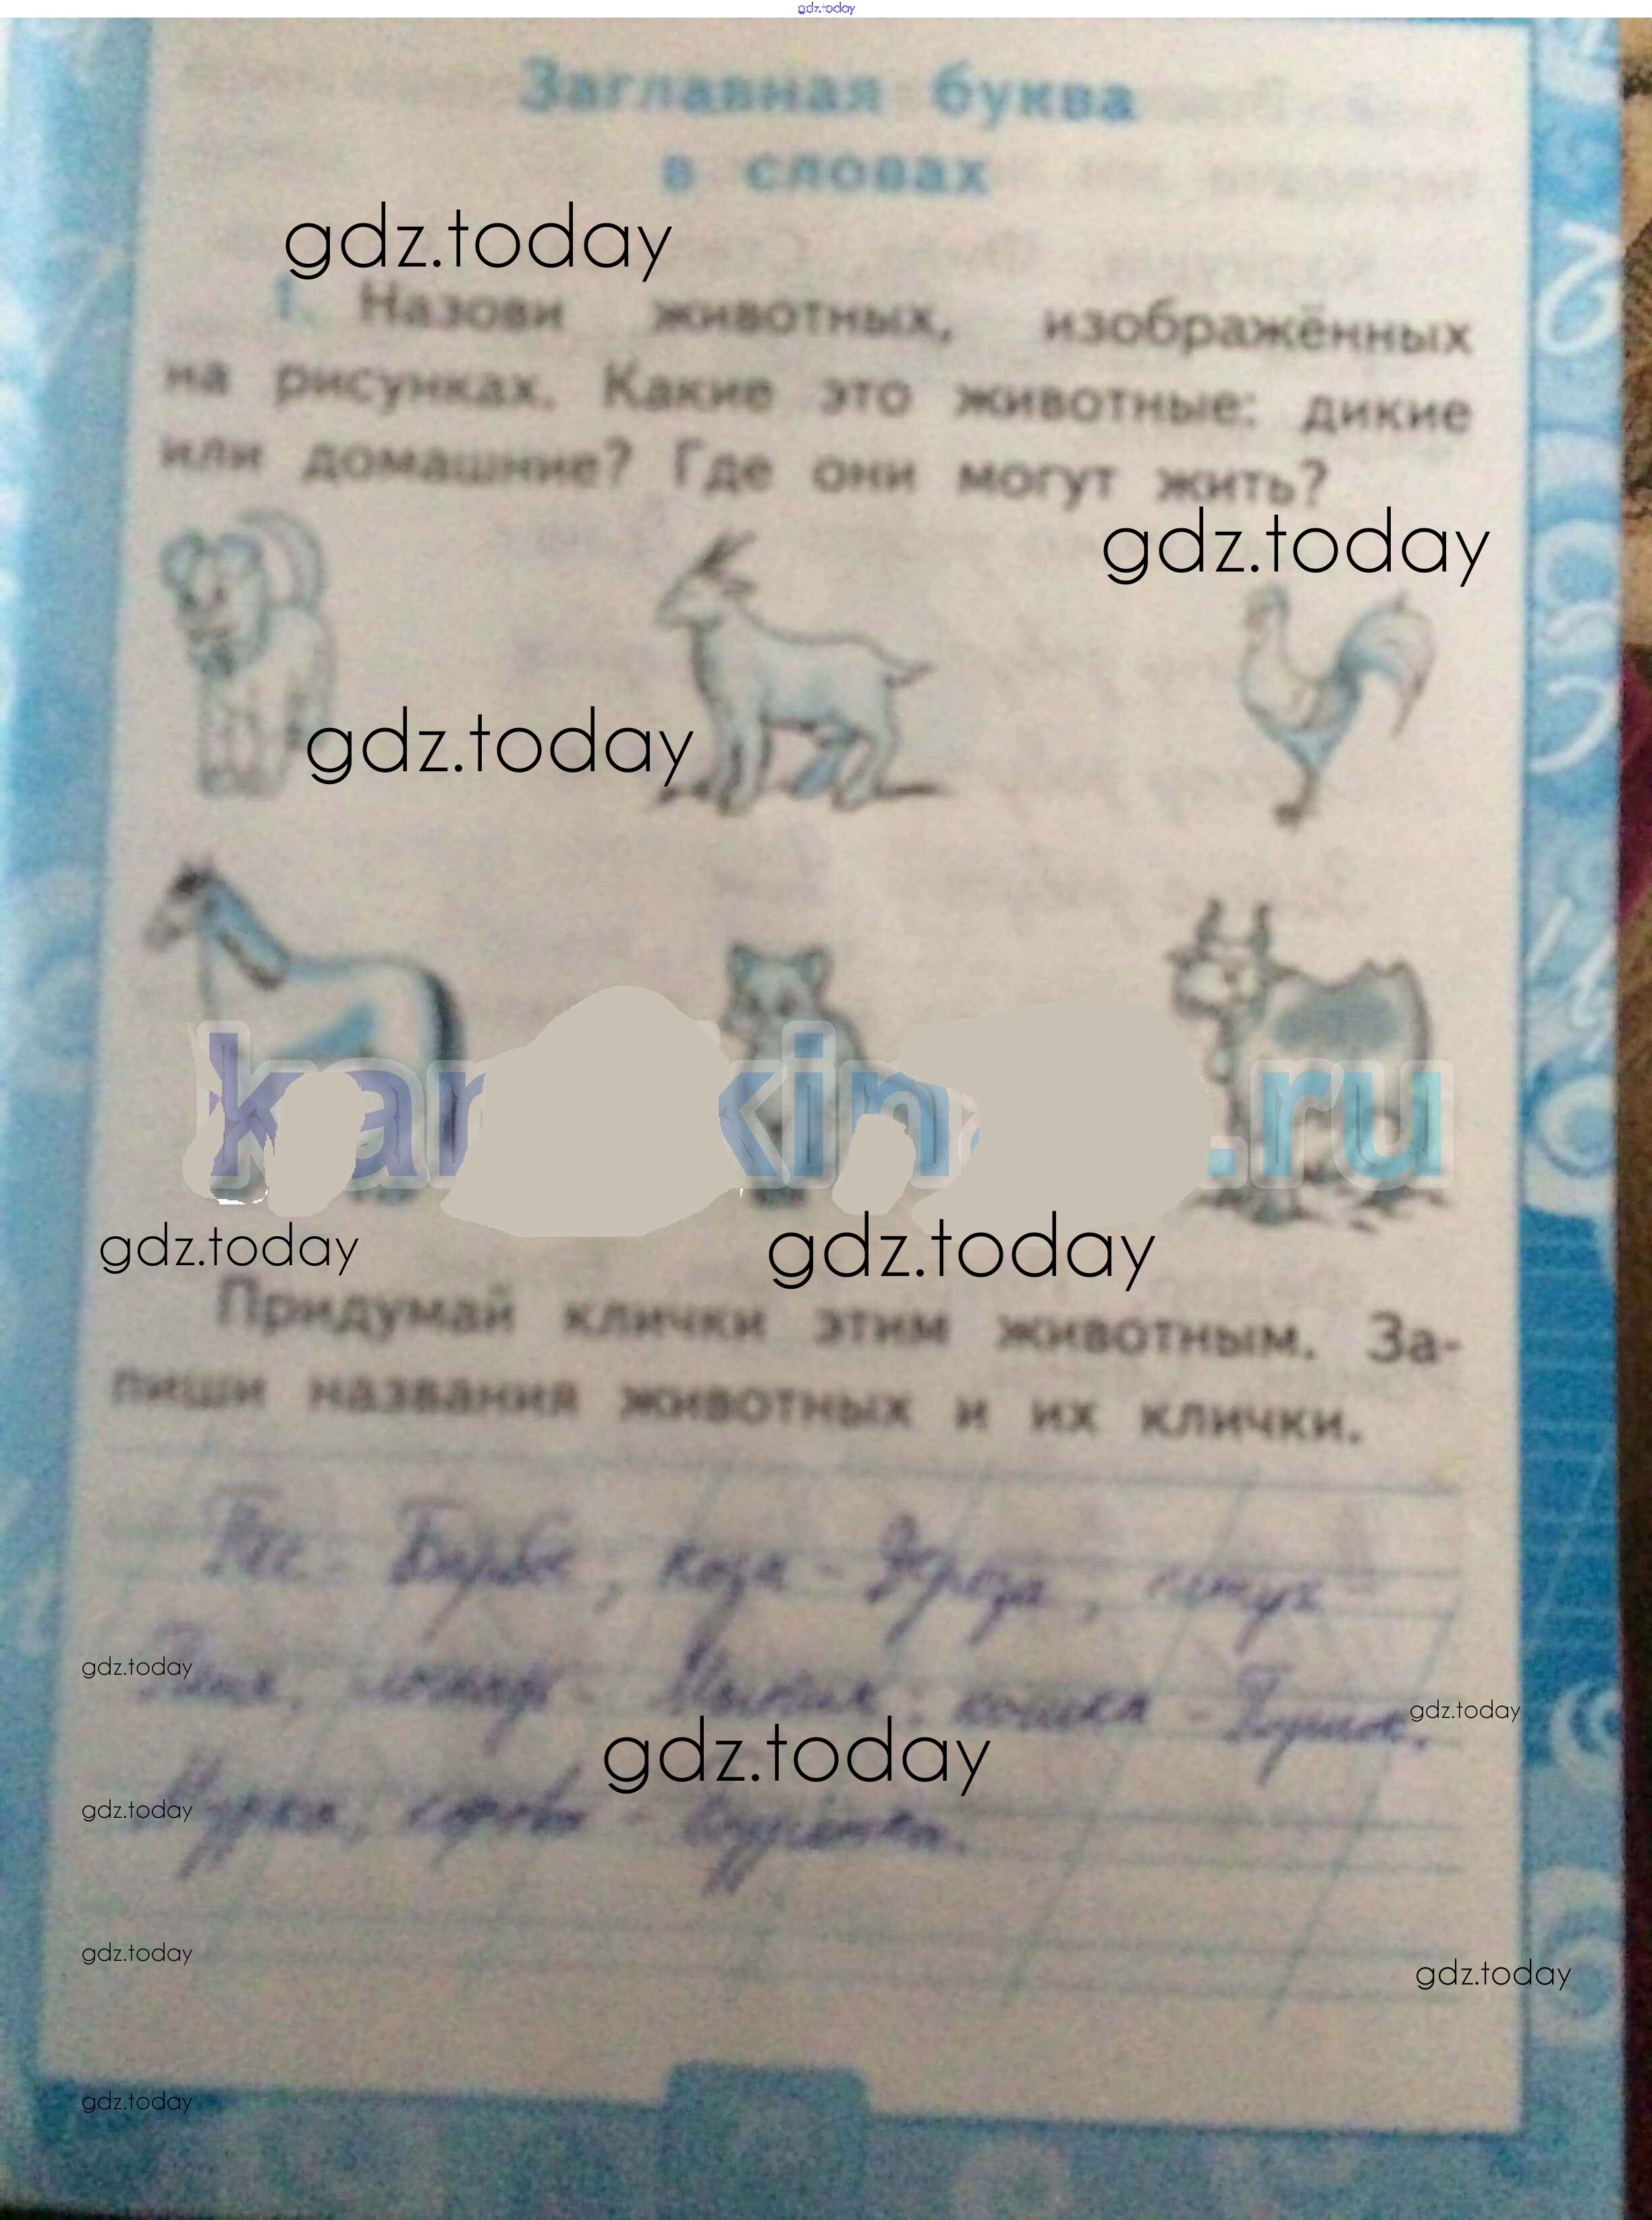 gdz.today
Заглавная буква
в словах
gdz.today
1. Назови животных, изображённых
на рисунках. Какие это животные: дикие
или домашние? Где они могут жить?
gdz.today
gdz.today
.ru
gdz.today
gdz.today
Придумай клички этим животным. За-
пиши названия животных и их клички.
Пес - Барбос, коза - Дереза, петух -
gdz.today
Петя, кошка -
gdz.today
gdz.today
gdz.today
Мурка, корова - Бурёнка.
gdz.today
gdz.today
gdz.today